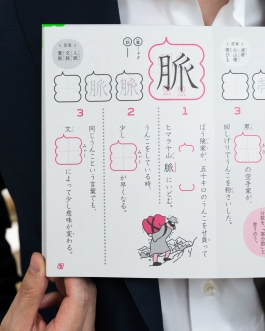 3
黒の空手家が、
回しげりでうんこを粉さいした。
脈
1
ぼう険家が、五十キロのうんこをせ負って
ヒマラヤ山脈にいどむ。
脈
2
うんこをしている時、
少しみゃくが早くなる。
脈
3
同じうんこという言葉でも、
文みゃくによって少し意味が変わる。